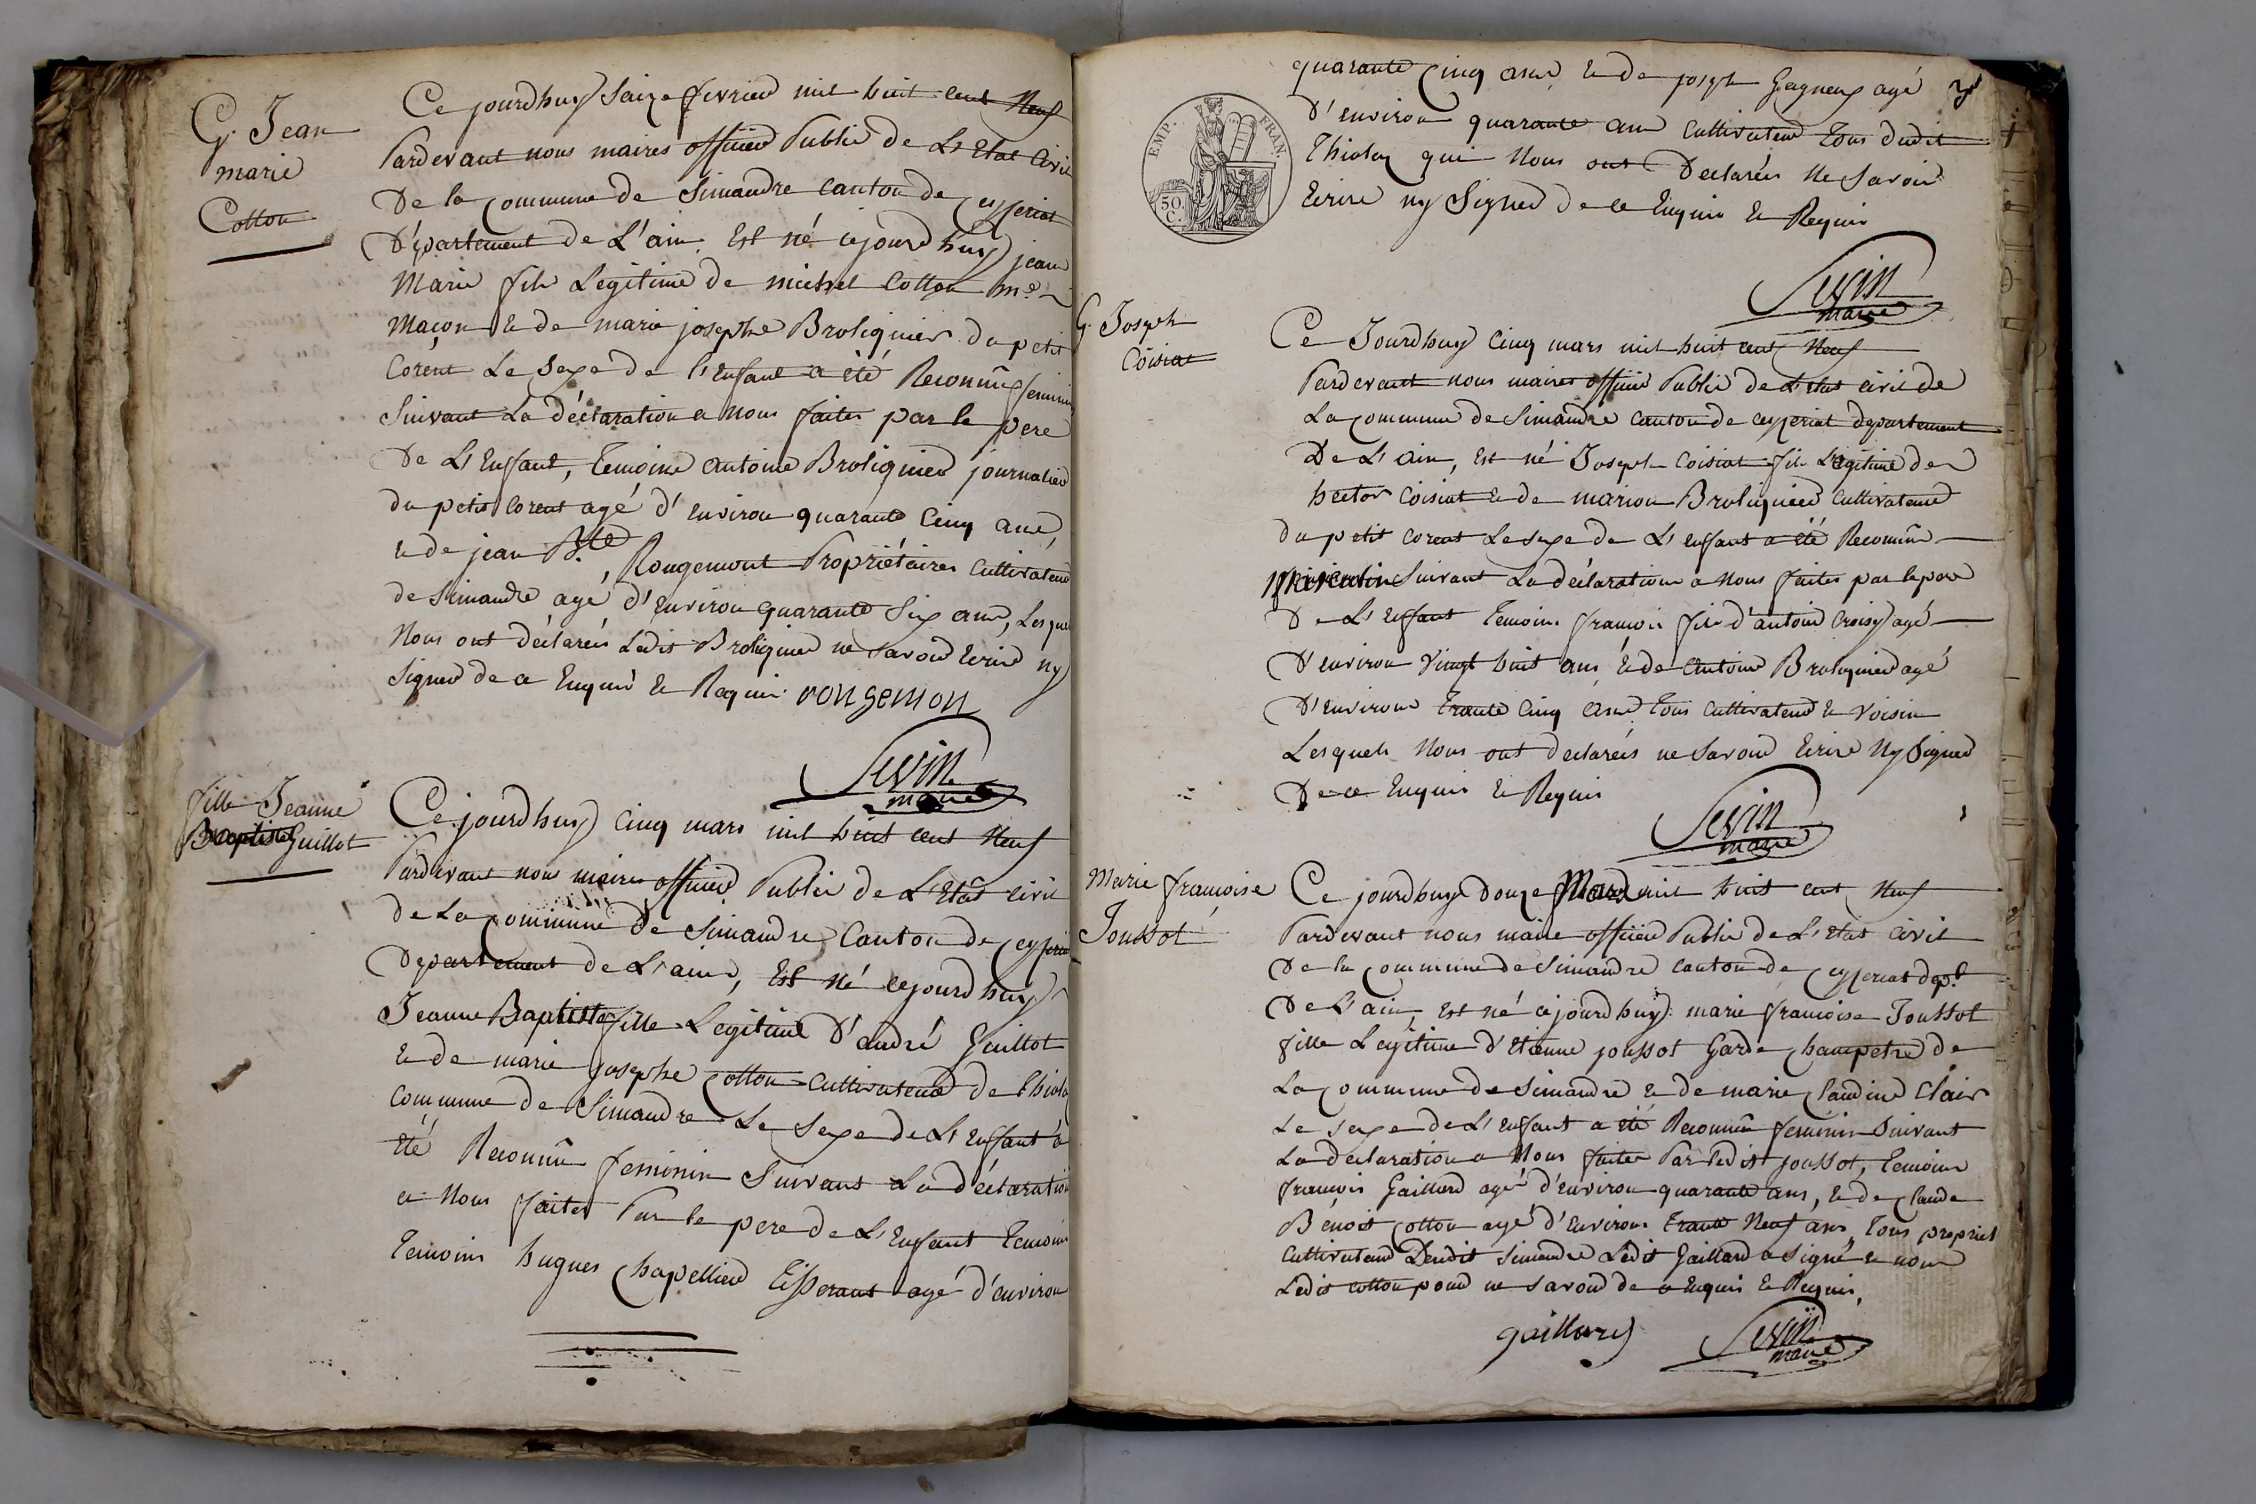 G. Jean
marie
Cotton
Ce jourdhuy Saize fevrier mil huit cent Neuf
Pardevant nous maires officier Public de L'Etat Civil
De la Commune de Simandre Canton de Ceyzeriat
Département de L'ain. Est né cejourdhuy jean
Marie fils Legitime de michel Cotton
Maçon & de marie josephe Broliquier du petit
Corent Le Sexe de l'enfant a été Reconnû feminin
Suivant La déclaration a Nous faites par le pere
De L'Enfant, Temoins antoine Broliquier journalier
du petit Corent agé d'environ quarante Cinq ans,
& de jean Bte Rougemont Propriétaires Cultivateur
de Simandre agé d'environ quarante Six ans, Lesquels
Nous ont déclarées Ledit Broliquier ne Savoir Ecrire ny
Signer de ce Enquis & Requis. rongemon
Sevin
maire
fille Jeanne
Baptiste Guillot
Ce jourdhuy Cinq mars mil huit cent Neuf
Pardevant nous maires officier Public de L'Etat Civil
de La Commune de Simandre Canton de Ceyzeriat
Departement de L'ain, Est Né cejourdhuy
Jeanne Baptiste fille Legitime D'andré Guillot
& de marie josephe Cotton Cultivateur de Thiola
Commune de Simandre Le Sexe de L'Enfant a
été Reconnû feminin Suivant La déclaration
a Nous faites Par le pere de L'Enfant Temoins
Temoins hugues Chapellier Tisserant agé d'environ
quarante Cinq ans & de joseph Gagneux agé
D'environ quarante ans Cultivateur Tous dudit
Thiolaz qui Nous ont Declarées Ne Savoir
Ecrire ny Signer De ce Enquis & Requis
EMP. FRAN.
50.
C.
Sevin
maire
G. Joseph
Coisiat
Ce Jourdhuy Cinq mars mil huit cent Neuf
Pardevant nous maires officier Public de L'Etat Civil de
La Commune de Simandre Canton de Ceyzeriat departement
De L'ain, Est né Joseph Coisiat fils Legitime de
hector Coisiat & de marion Broliquier Cultivateur
du petit Corent Le Sexe de L'Enfant a été Reconnû
Masculin Suivant La déclaration a Nous faites par le pere
De L'Enfant Temoins francois fils d'antoine Croisy agé
D'environ vingt huit ans, & de Antoine Broliquier agé
D'environ Trante Cinq ans Tous Cultivateur & Voisin
Lesquels Nous ont declarées ne Savoir Ecrire Ny Signer
De ce Enquis & Requis
Sevin
maire
Marie francoise
Joussot
Ce jourdhuy Douze Mars mil huit cent Neuf
Pardevant nous maire officier Public de L'Etat Civil
De la Commune de Simandre Canton de Ceyzeriat dept
De L'ain, Est né cejourdhuy marie francoise Joussot
fille Legitime d'Etienne joussot Garde Champetre de
La Commune de Simandre & de marie Claudine Clair
Le Sexe de L'Enfant a été Reconnû feminin Suivant
La déclaration a Nous faites Par Ledit joussot, Temoins
francois Gaillard agé d'environ quarante ans, & de Claude
Bénoit Cotton agé d'Environ Trante Neuf ans, Tous propriet
Cultivateur Dudit Simandre Ledit Gaillard a Signé & non
Ledit Cotton pour ne Savoir de ce Enquis & Requis,
gaillard
Sevin
maire